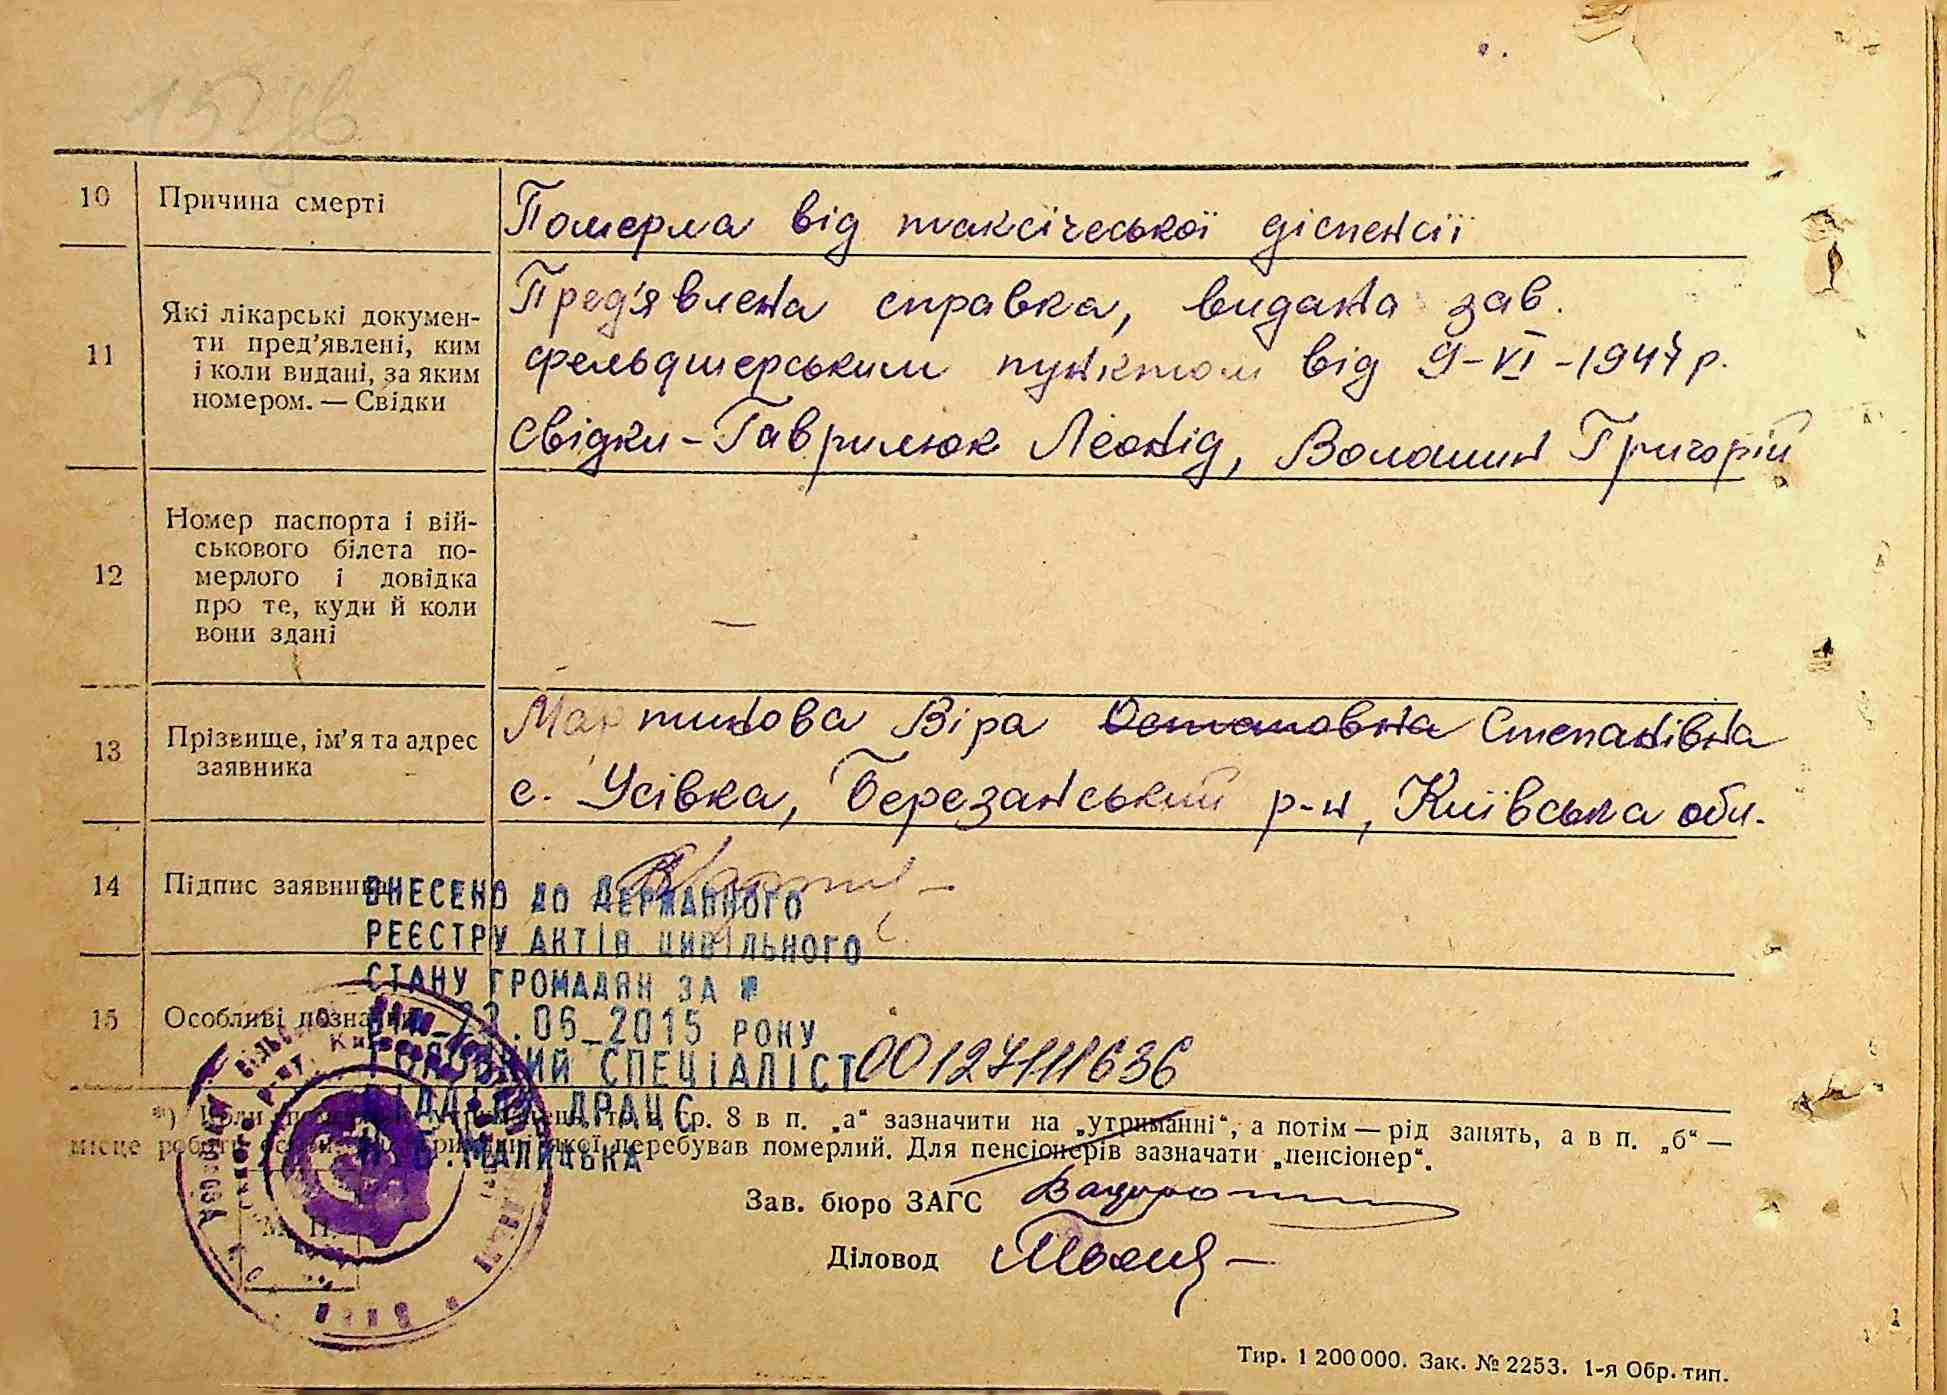 10 Причина смерті
Померла від таксічеської діспенсії
11 Які лікарські докумен-
ти пред'явлені, ким
і коли видані, за яким
номером. — Свідки
Пред'явлена справка, видана зав.
фельдшерським пунктом від 9-VI-1947 р.
Свідки - Гаврилюк Леонід, Волошин Григорій
12 Номер паспорта і вій-
ськового білета по-
мерлого і довідка
про те, куди й коли
вони здані
—
13 Прізвище, ім'я та адрес
заявника
Мартинова Віра Остаповна Степанівна
с. Усівка, Березанський р-н, Київська обл.
14 Підпис заявника
ВНЕСЕНО ДО ДЕРЖАВНОГО
РЕЄСТРУ АКТІВ ЦИВІЛЬНОГО
СТАНУ ГРОМАДЯН ЗА №
15 Особливі познач
.06_2015 РОКУ
ГОЛОВНИЙ СПЕЦІАЛІСТ 00127111636
ВІДДІЛУ ДРАЦС
гр. 8 в п. „а“ зазначити на „утриманні“, а потім — рід занять, а в п. „б“ —
місце якої перебував померлий. Для пенсіонерів зазначати „пенсіонер“.
МАЛИЦЬКА
Зав. бюро ЗАГС
Діловод
М. П.
Тир. 1 200 000. Зак. № 2253. 1-я Обр. тип.